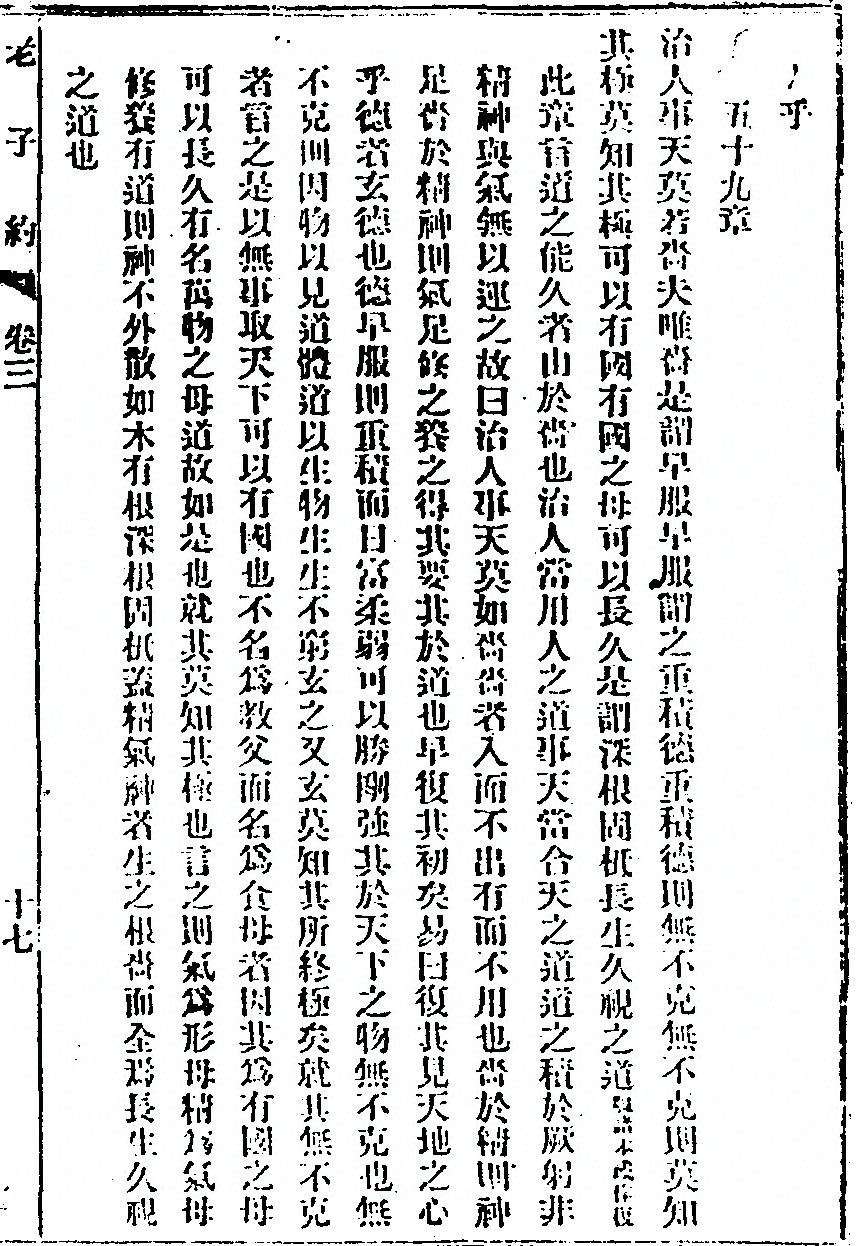 乎
五十九章
治人事天莫若嗇夫唯嗇是謂早服早服謂之重積德重積德則無不克無不克則莫知
其極莫知其極可以有國有國之母可以長久是謂深根固柢長生久視之道
此章言道之能久者由於嗇也治人當用人之道事天當合天之道道之積於厥躬非
精神與氣無以運之故曰治人事天莫如嗇嗇者入而不出有而不用也嗇於精則神
足嗇於精神則氣足修之發之得其要其於道也早復其初矣易曰復其見天地之心
乎德者玄德也德早服則重積而日富柔弱可以勝剛強其於天下之物無不克也無
不克則因物以見道體道以生物生生不窮玄之又玄莫知其所終極矣就其無不克
者言之是以無事取天下可以有國也不名為教父而名為食母者因其為有國之母
可以長久有名萬物之母道故如是也就其莫知其極也言之則氣為形母精為氣母
修發有道則神不外散如木有根深根固柢蓋精氣神者生之根嗇而全焉長生久視
之道也
老子約 卷三 十七